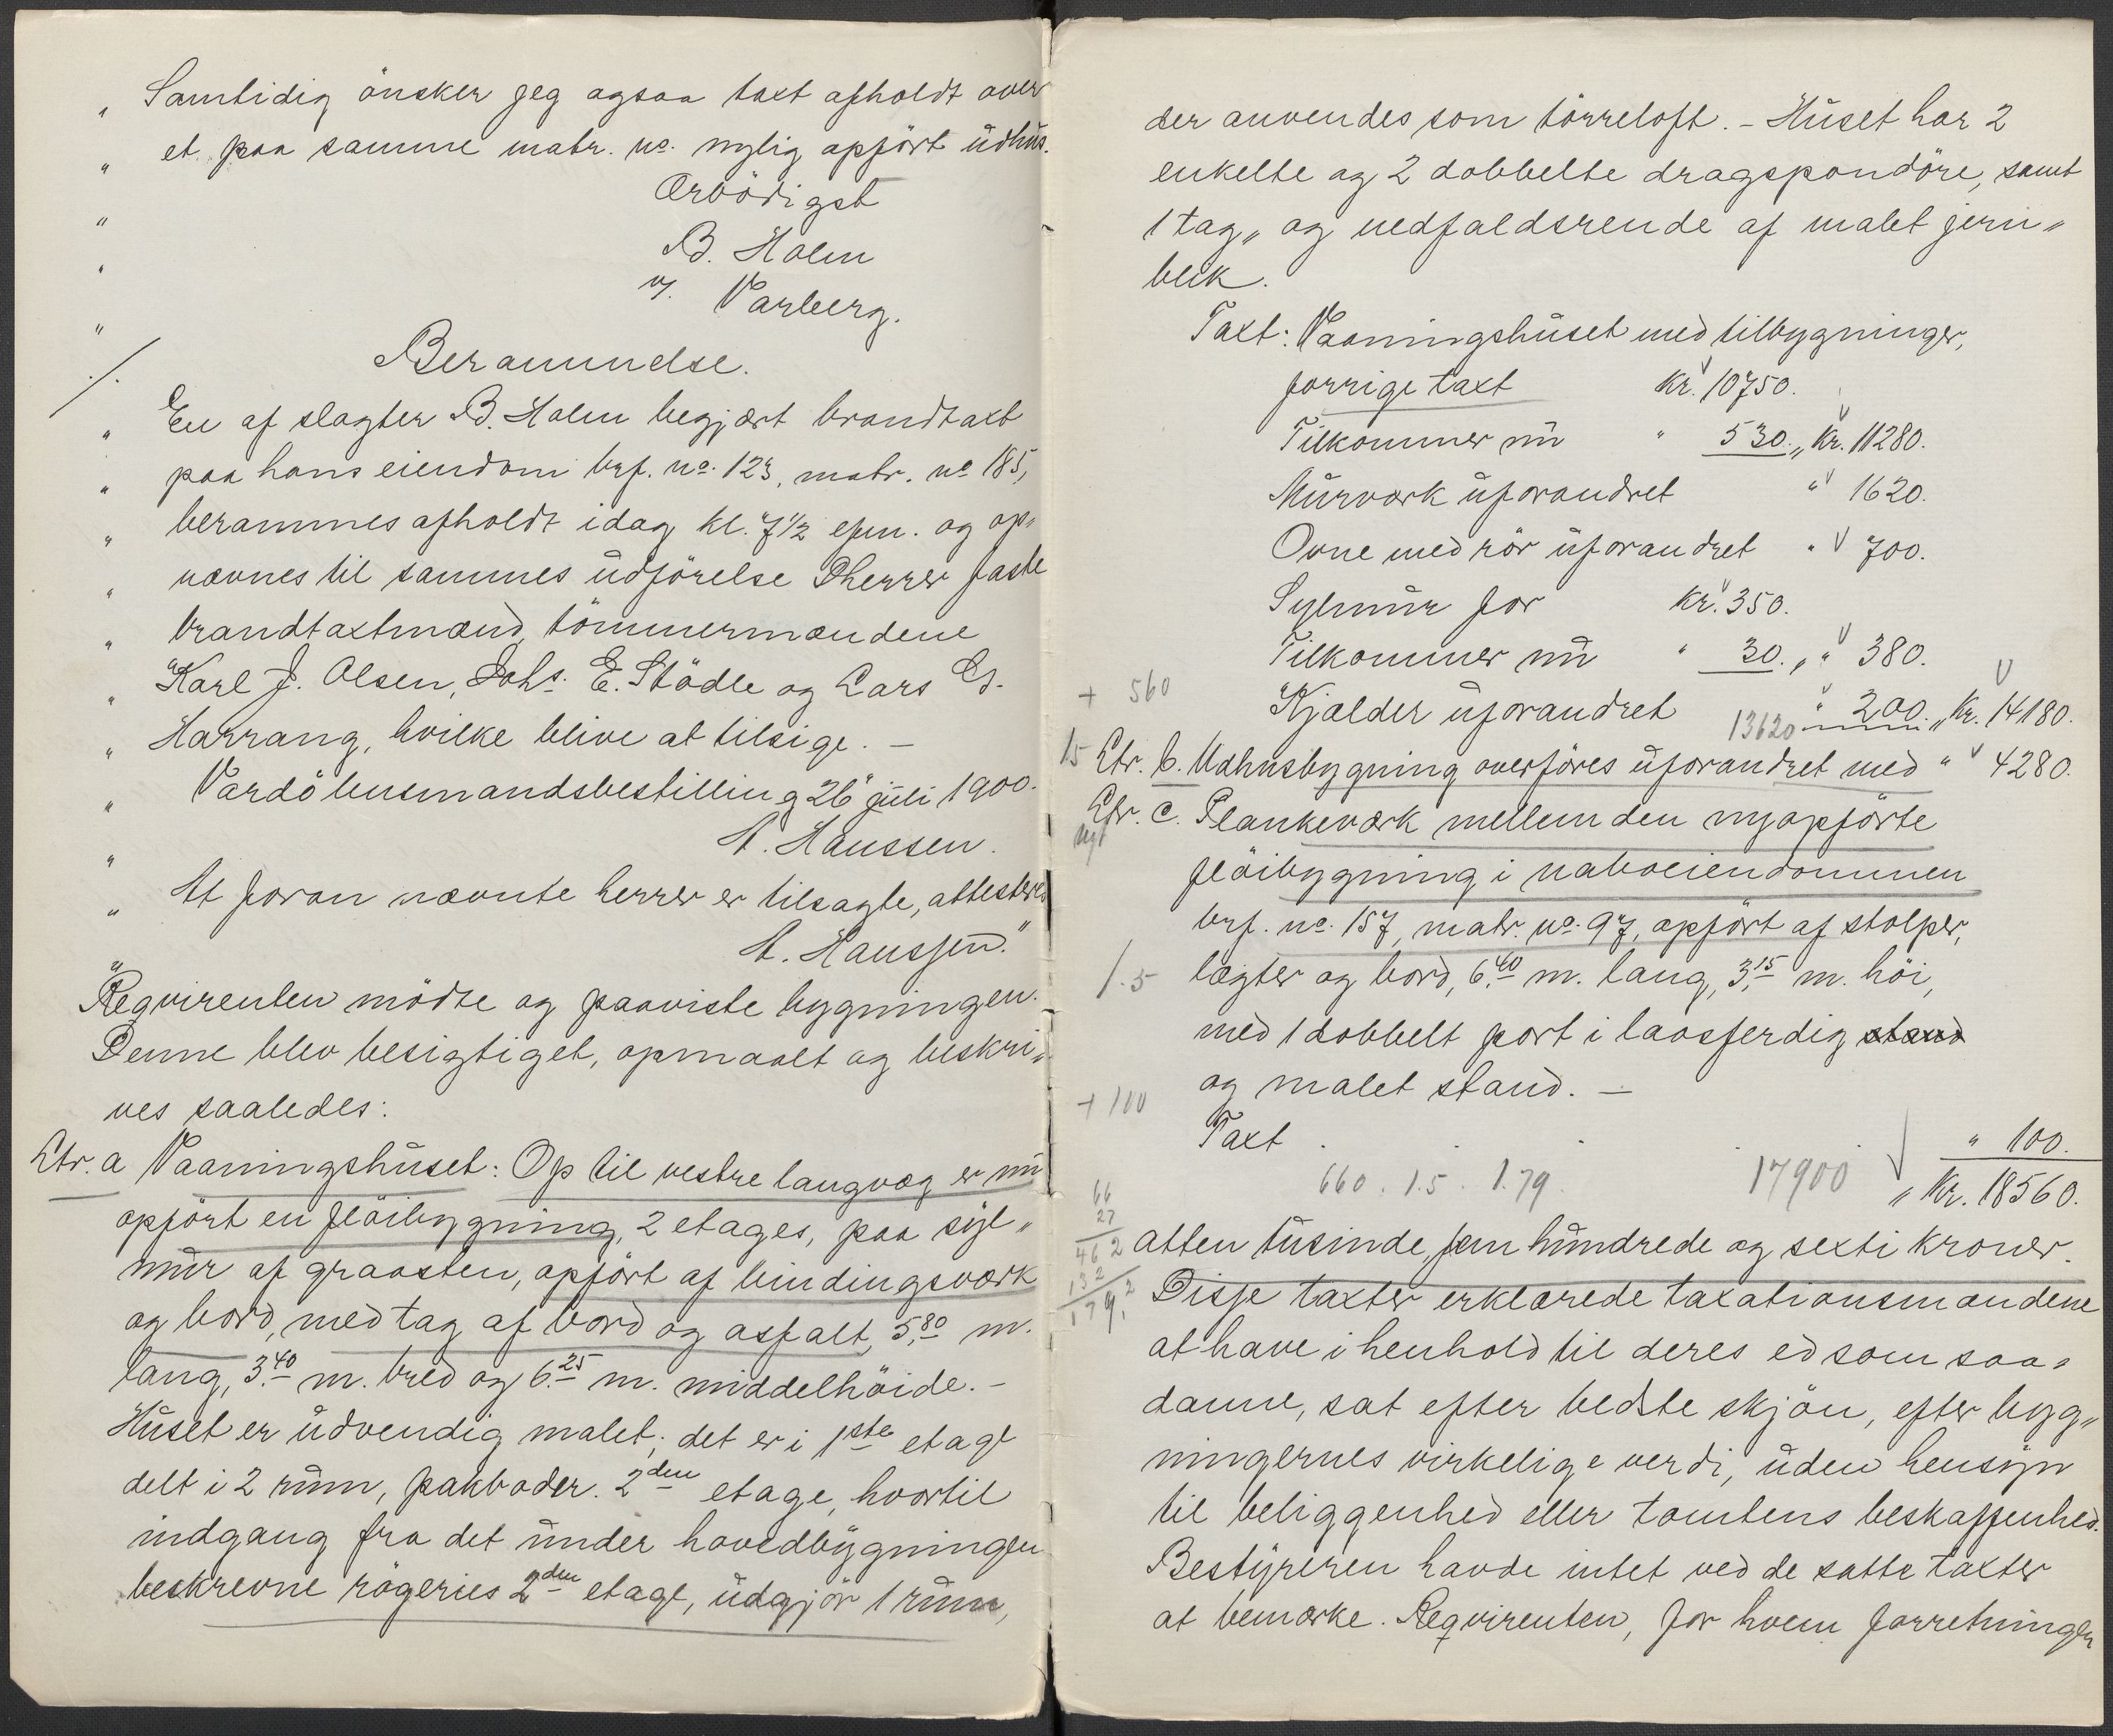 „ Samtidig önsker jeg ogsaa taxt afholdt over
„ et paa samme matr. no. nylig opfört udhus.
„ Ærbödigst
„ B. Holm
v/. Varberg.
„
./. Berammelse.
„ En af slagter B. Holm begjært brandtaxt
„ paa hans eiendom brf. no. 123, matr. no 185,
„ berammes afholdt idag kl. 7½ efm. og op„
„ nævnes til sammes udförelse Dherrer faste
„ brandtaxtmænd, tömmermændene
„ Karl J. Olsen, Johs. E. Stödle og Lars Es.
„ Harrang, hvilke blive at tilsige. —
„ Vardö lensmandsbestilling 26 juli 1900.
„ A. Hanssen.
„ At foran nævnte herrer er tilsagte, attesteres
A. Hanssen."
„Reqvirenten mödte og paaviste bygningen.
Denne blev besigtiget, opmaalt og beskri„
ves saaledes:
Ltr. a Vaaningshuset: Op til vestre langvæg er nu
opfört en flöibygning, 2 etages, paa syl„
mur af graasten, opfört af bindingsværk
og bord, med tag af bord og asfalt, 5,80 m.
lang, 3,40 m. bred og 6,25 m. middelhöide. —
Huset er udvendig malet; det er i 1ste etage
delt i 2 rum, pakboder. 2den etage, hvortil
indgang fra det under hovedbygningen
beskrevne rögeries 2den etage, udgjör 1 rum,
der anvendes som törreloft. — Huset har 2
enkelte og 2 dobbelte dragspondöre, samt
1 tag„ og nedfaldsrende af malet jern„
blik.
Taxt: Vaaningshuset med tilbygninger,
forrige taxt Kr. 10750.
Tilkommer nu " 530. „ Kr. 11280.
Murværk uforandret " 1620.
Ovne med rör uforandret " 700.
Sylmur for Kr. 350.
Tilkommer nu " 30. „ " 380.
+ 560 Kjælder uforandret 13620 " 200. „ Kr. 14180.
15 Ltr. b. Udhusbygning overföres uforandret med " 4280.
Ltr. c. Plankeværk mellem den nyopförte
nyt flöibygning i naboeiendommen
brf. no. 157, matr. no. 97, opfört af stolper,
1.5 lægter og bord, 6,40 m. lang, 3,15 m. höi,
med 1 dobbelt port i laasferdig stand
+ 100 og malet stand. —
Taxt . . . . " 100.
660 . 1.5 . 1.79. 17900 „ Kr. 18560.
66
27
462 atten tusinde, fem hundrede og sexti kroner.
132
179,2 Disse taxter erklærede taxationsmændene
at have i henhold til deres ed som saa„
danne, sat efter bedste skjön, efter byg„
ningernes virkelige verdi, uden hensyn
til beliggenhed eller tomtens beskaffenhed.
Bestyreren havde intet ved de satte taxter
at bemærke. Reqvirenten, for hvem forretningen